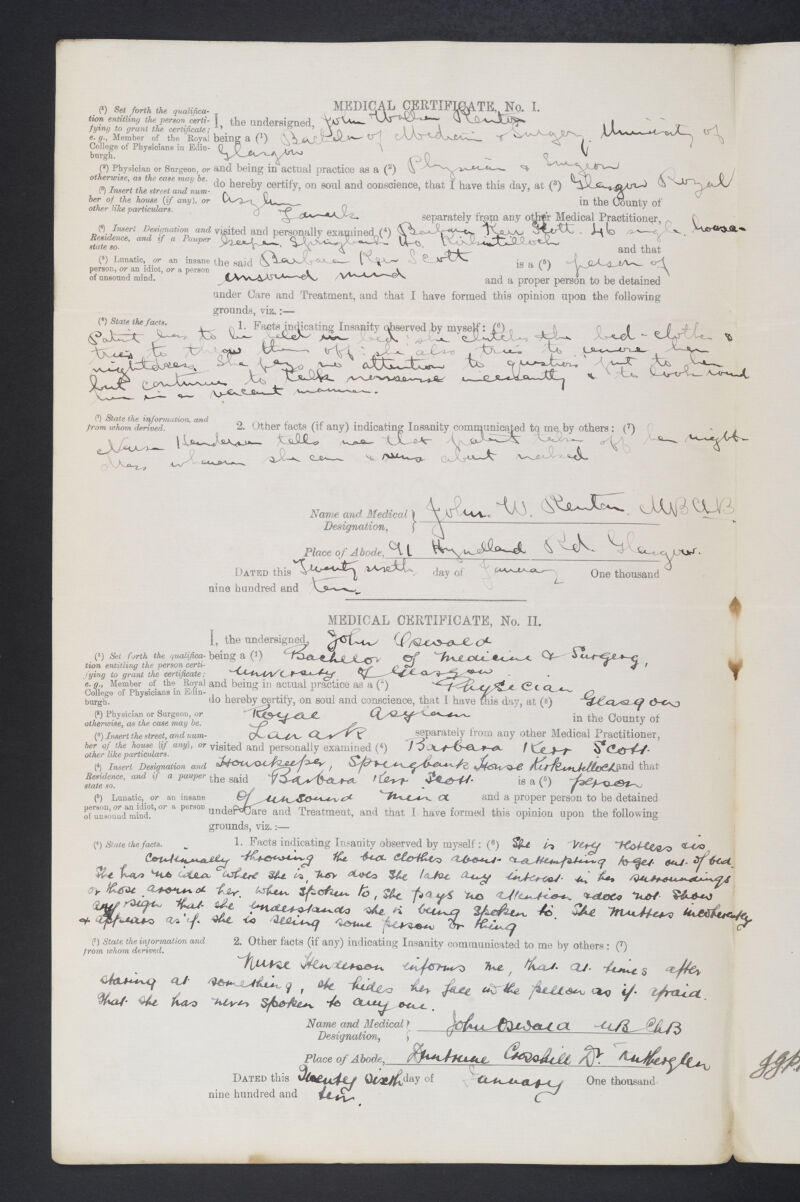 MEDICAL CERTIFICATE, No. I.
(¹) Set forth the qualifica-
tion entitling the person certi-
fying to grant the certificate;
e. g., Member of the Royal
College of Physicians in Edin-
burgh.
(²) Physician or Surgeon, or
otherwise, as the case may be.
(³) Insert the street and num-
ber of the house (if any), or
other like particulars.
(⁴) Insert Designation and
Residence, and if a Pauper
state so.
(⁵) Lunatic, or an insane
person, or an idiot, or a person
of unsound mind.
I, the undersigned, John Walker Renton
being a (¹) Bachelor of Medicine & Surgery, University of
Glasgow
and being in actual practice as a (²) Physician & Surgeon
do hereby certify, on soul and conscience, that I have this day, at (³) Glasgow Royal
Asylum in the County of
Lanark separately from any other Medical Practitioner,
visited and personally examined (⁴) Barbara Kerr Scott. 46 single, house-
keeper, Springbank Ho. Kirkintilloch and that
the said Barbara Kerr Scott is a (⁵) person of
unsound mind and a proper person to be detained
under Care and Treatment, and that I have formed this opinion upon the following
grounds, viz.:—
(⁶) State the facts.
1. Facts indicating Insanity observed by myself: (⁶)
Patient has to be held in bed: she clutches the bed-clothes &
tries to throw them off: she also tries to remove her
nightdress. She pays no attention to questions put to her
but continues to talk nonsense incessantly & to look round
her in a vacant manner.
(⁷) State the information, and
from whom derived.
2. Other facts (if any) indicating Insanity communicated to me by others: (⁷)
Nurse Henderson tells me that patient takes off her night-
dress whenever she can & runs about naked
Name and Medical Designation, John. W. Renton. M B Ch B.
Place of Abode, 91 Hyndland Rd. Glasgow.
DATED this Twenty sixth day of January One thousand
nine hundred and ten.
MEDICAL CERTIFICATE, No. II.
(¹) Set forth the qualifica-
tion entitling the person certi-
fying to grant the certificate;
e. g., Member of the Royal
College of Physicians in Edin-
burgh.
(²) Physician or Surgeon, or
otherwise, as the case may be.
(³) Insert the street, and num-
ber of the house (if any), or
other like particulars.
(⁴) Insert Designation and
Residence, and if a pauper
state so.
(⁵) Lunatic, or an insane
person, or an idiot, or a person
of unsound mind.
I, the undersigned, John Oswald
being a (¹) Bachelor of Medicine & Surgery,
University of Glasgow
and being in actual practice as a (²) Physician
do hereby certify, on soul and conscience, that I have this day, at (³) Glasgow
Royal Asylum in the County of
Lanark separately from any other Medical Practitioner,
visited and personally examined (⁴) Barbara Kerr Scott
Housekeeper, Springbank House Kirkintilloch and that
the said Barbara Kerr Scott is a (⁵) person
of unsound mind and a proper person to be detained
under Care and Treatment, and that I have formed this opinion upon the following
grounds, viz.:—
(⁶) State the facts.
1. Facts indicating Insanity observed by myself: (⁶) She is very restless is
continually throwing the bed clothes about & attempting to get out of bed.
She has no idea where she is, nor does she take any interest in her surroundings
or those around her. When spoken to, she pays no attention & does not show
any sign that she understands she is being spoken to. She mutters incoherently
& appears as if she is seeing some person or thing
(⁷) State the information and
from whom derived.
2. Other facts (if any) indicating Insanity communicated to me by others: (⁷)
Nurse Henderson informs me, that at times after
staring at something, she hides her face in the pillow as if afraid.
That she has never spoken to any one.
Name and Medical Designation, John Oswald MB ChB
Place of Abode, Crosshill Dr. Rutherglen
DATED this Twenty sixth day of January One thousand
nine hundred and ten.